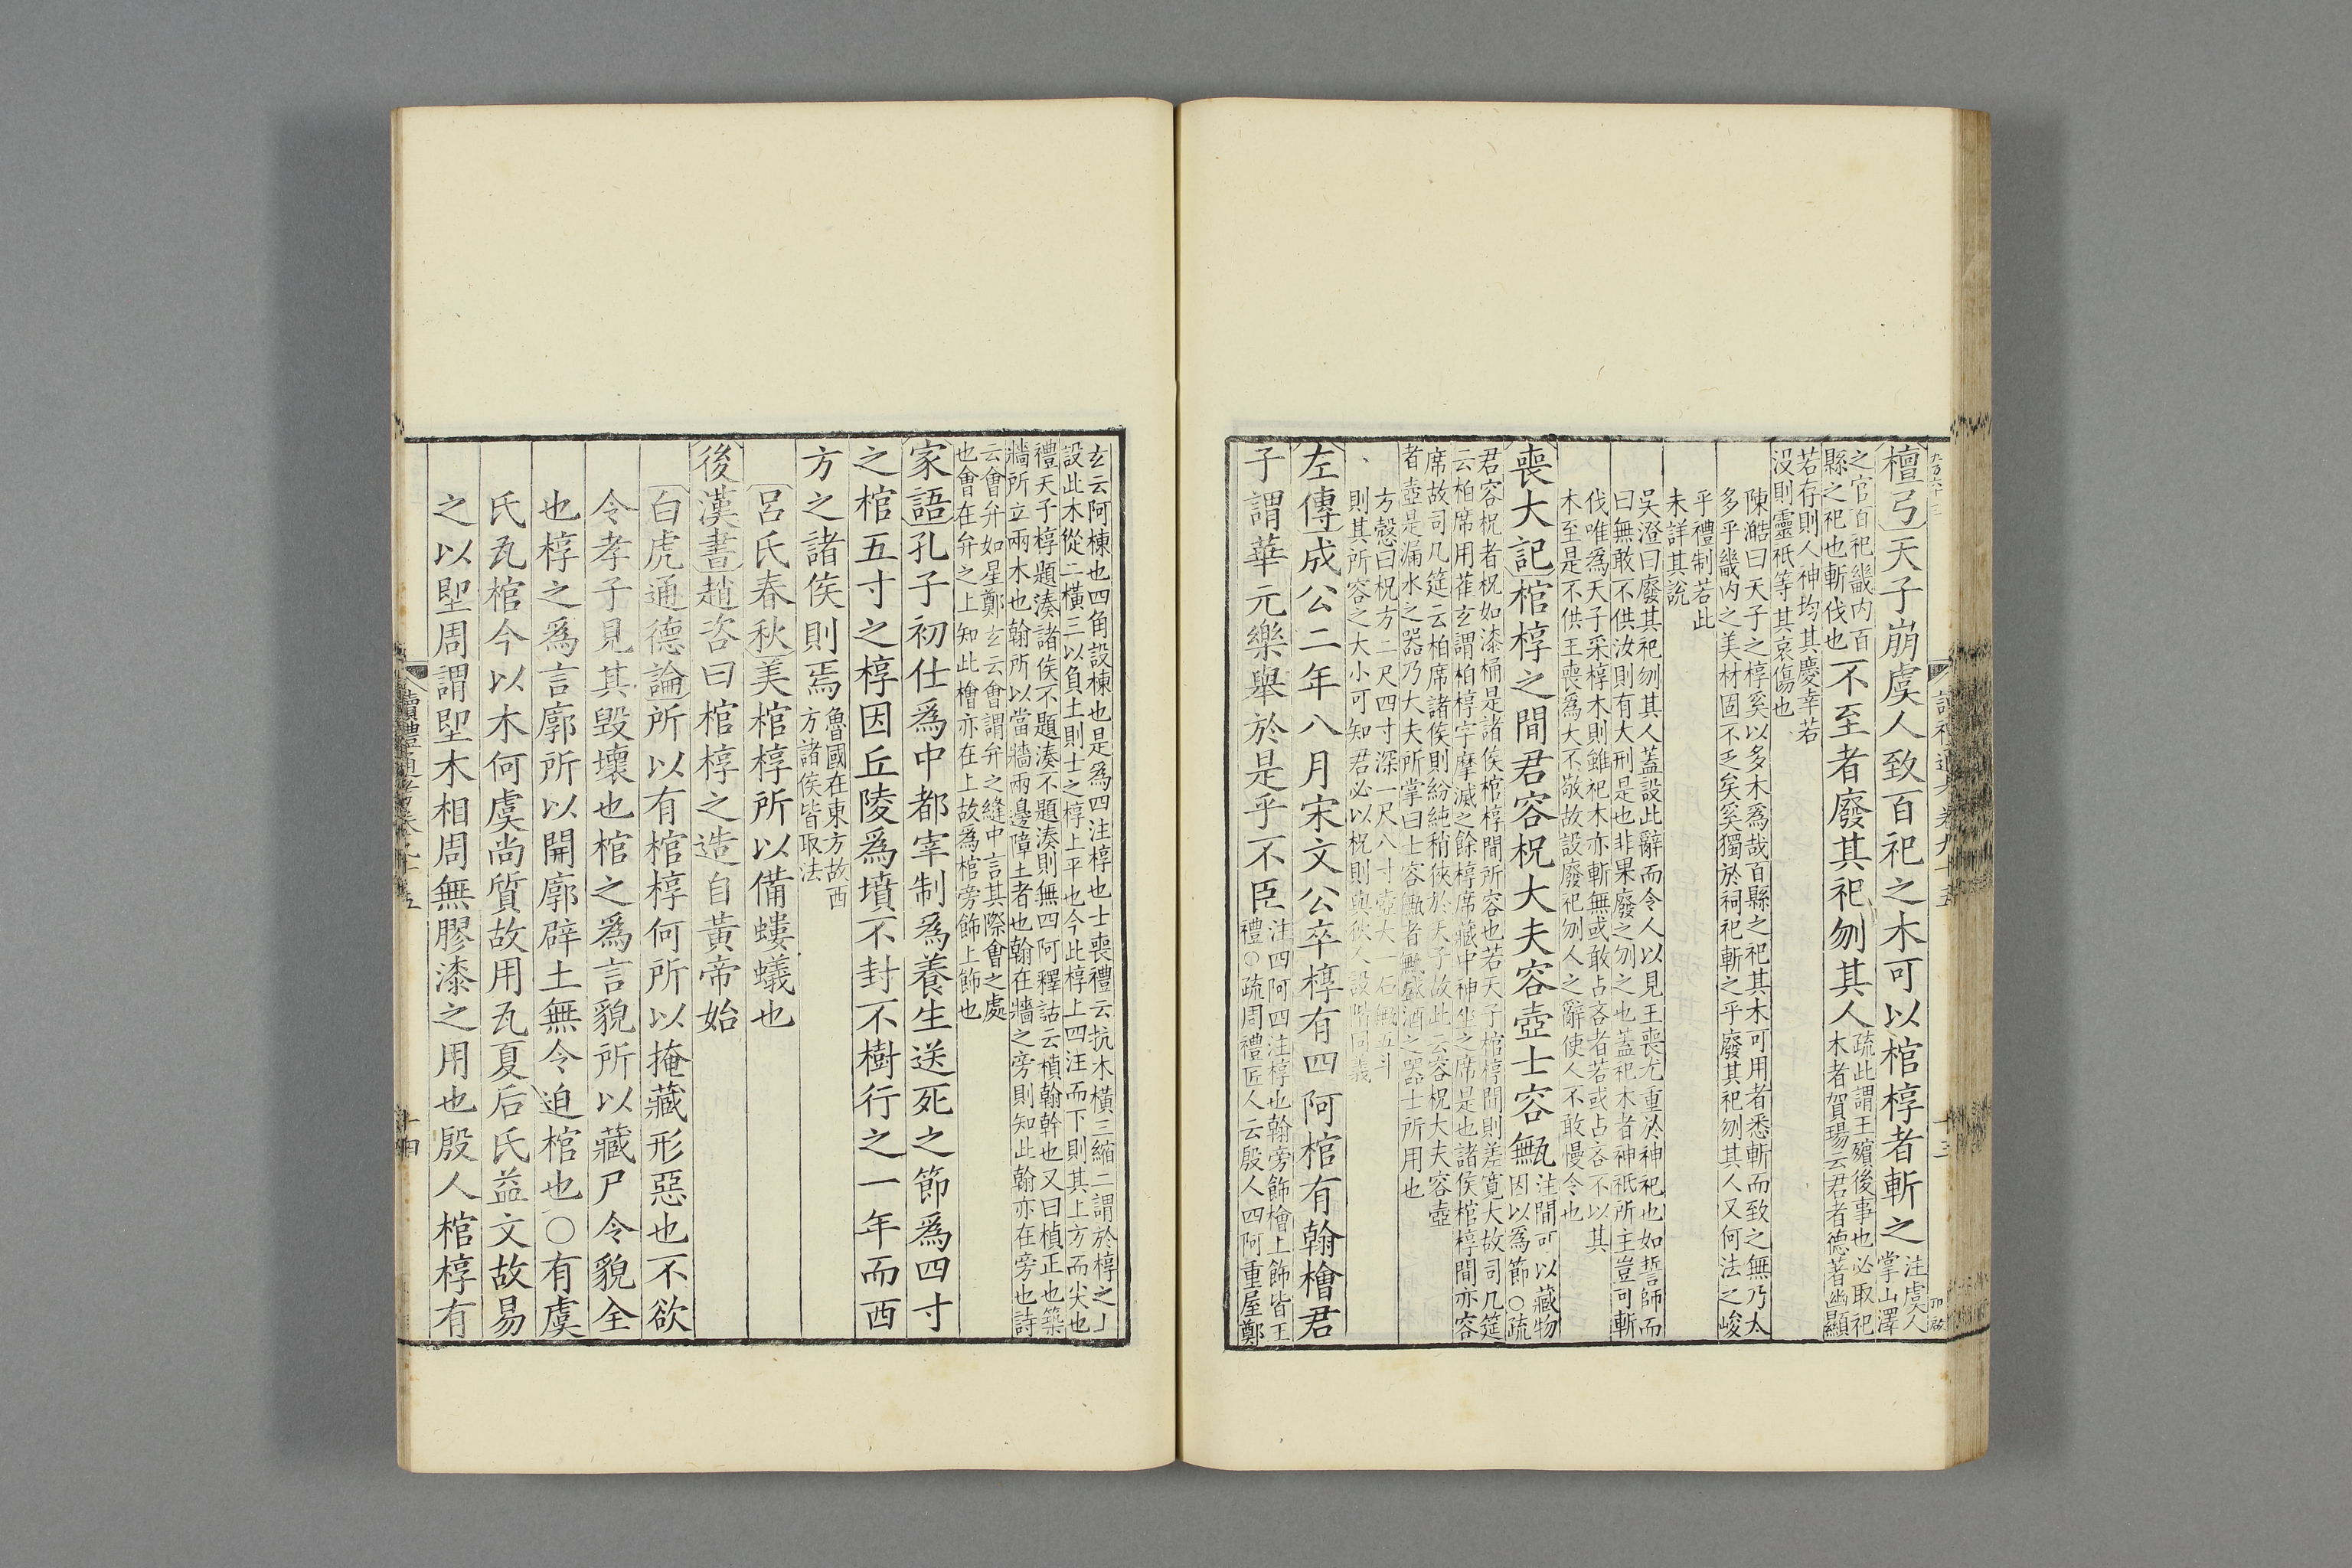 檀弓天子崩虞人致百祀之木可以棺椁者斬之注虞人掌山澤
之官百祀畿内百
縣之祀也斬伐也不至者廢其祀刎其人疏此謂王殯後事也必取祀
木者賀瑒云君者德著幽顯
若存則人神均其慶幸若
没則靈祇等其哀傷也
陳澔曰天子之椁奚以多木爲哉百縣之祀其木可用者悉斬而致之無乃太
多乎畿内之美材固不乏矣奚獨於祠祀斬之乎廢其祀刎其人又何法之峻
乎禮制若此
未詳其説
吳澄曰廢其祀刎其人蓋設此辭而令人以見王喪尤重於神祀也如誓師而
曰無敢不供汝則有大刑是也非果廢之刎之也蓋祀木者神祇所主豈可斬
伐唯爲天子采椁木則雖祀木亦斬無或敢占吝者若或占吝不以其
木至是不供王喪爲大不敬故設廢祀刎人之辭使人不敢慢令也
喪大記棺椁之間君容柷大夫容壺士容甒注間可以藏物
因以爲節○疏
君容柷者柷如漆桶是諸侯棺椁間所容也若天子棺椁間則差寛大故司几筵
云柏席用萑玄謂柏椁字摩滅之餘椁席藏中神坐之席是也諸侯棺椁間亦容
席故司几筵云柏席諸侯則紛純稍狹於天子故此云容柷大夫容壺
者壺是漏水之器乃大夫所掌曰士容甒者甒盛酒之器士所用也
方慤曰柷方二尺四寸深一尺八寸壺大一石甒五斗
則其所容之大小可知君必以柷則與狄人設階同義
左傳成公二年八月宋文公卒椁有四阿棺有翰檜君
子謂華元樂舉於是乎不臣注四阿四注椁也翰旁飾檜上飾皆王
禮○疏周禮匠人云殷人四阿重屋鄭
玄云阿棟也四角設棟也是爲四注椁也士喪禮云抗木橫三縮二謂於椁之上
設此木從二橫三以負土則士之椁上平也今此椁上四注而下則其上方而尖也
禮天子椁題湊諸侯不題湊不題湊則無四阿釋詁云楨翰幹也又曰楨正也築
牆所立兩木也翰所以當牆兩邊障土者也翰在牆之旁則知此翰亦在旁也詩
云會弁如星鄭玄云會謂弁之縫中言其際會之處
也會在弁之上知此檜亦在上故爲棺旁飾上飾也
家語孔子初仕爲中都宰制爲養生送死之節爲四寸
之棺五寸之椁因丘陵爲墳不封不樹行之一年而西
方之諸侯則焉魯國在東方故西
方諸侯皆取法
呂氏春秋美棺椁所以備螻蟻也
後漢書趙咨曰棺椁之造自黃帝始
白虎通德論所以有棺椁何所以掩藏形惡也不欲
令孝子見其毁壞也棺之爲言貌所以藏尸令貌全
也椁之爲言廓所以開廓辟土無令迫棺也○有虞
氏瓦棺今以木何虞尚質故用瓦夏后氏益文故易
之以堲周謂堲木相周無膠漆之用也殷人棺椁有
讀禮通考卷九十五
十四